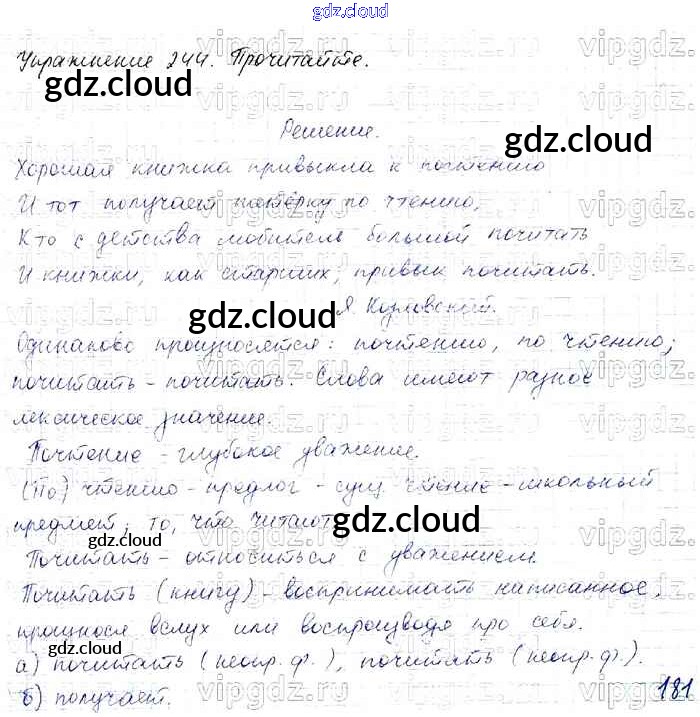 gdz.cloud
Упражнение 244. Прочитайте.
Решение.
Хорошая книжка привыкла к почтению
И тот получает пятёрку по чтению,
Кто с детства любитель большой почитать
И книжки, как старших, привык почитать.
Я. Козловский.
Одинаково произносятся: почтению, по чтению;
почитать – почитать. Слова имеют разное
лексическое значение.
Почтение – глубокое уважение.
(По) чтению – предлог – сущ. чтение – школьный
предмет; то, что читают.
Почитать – относиться с уважением.
Почитать (книгу) – воспринимать написанное,
произнося вслух или воспроизводя про себя.
а) почитать (неопр.ф.), почитать (неопр.ф.).
б) получает.
181